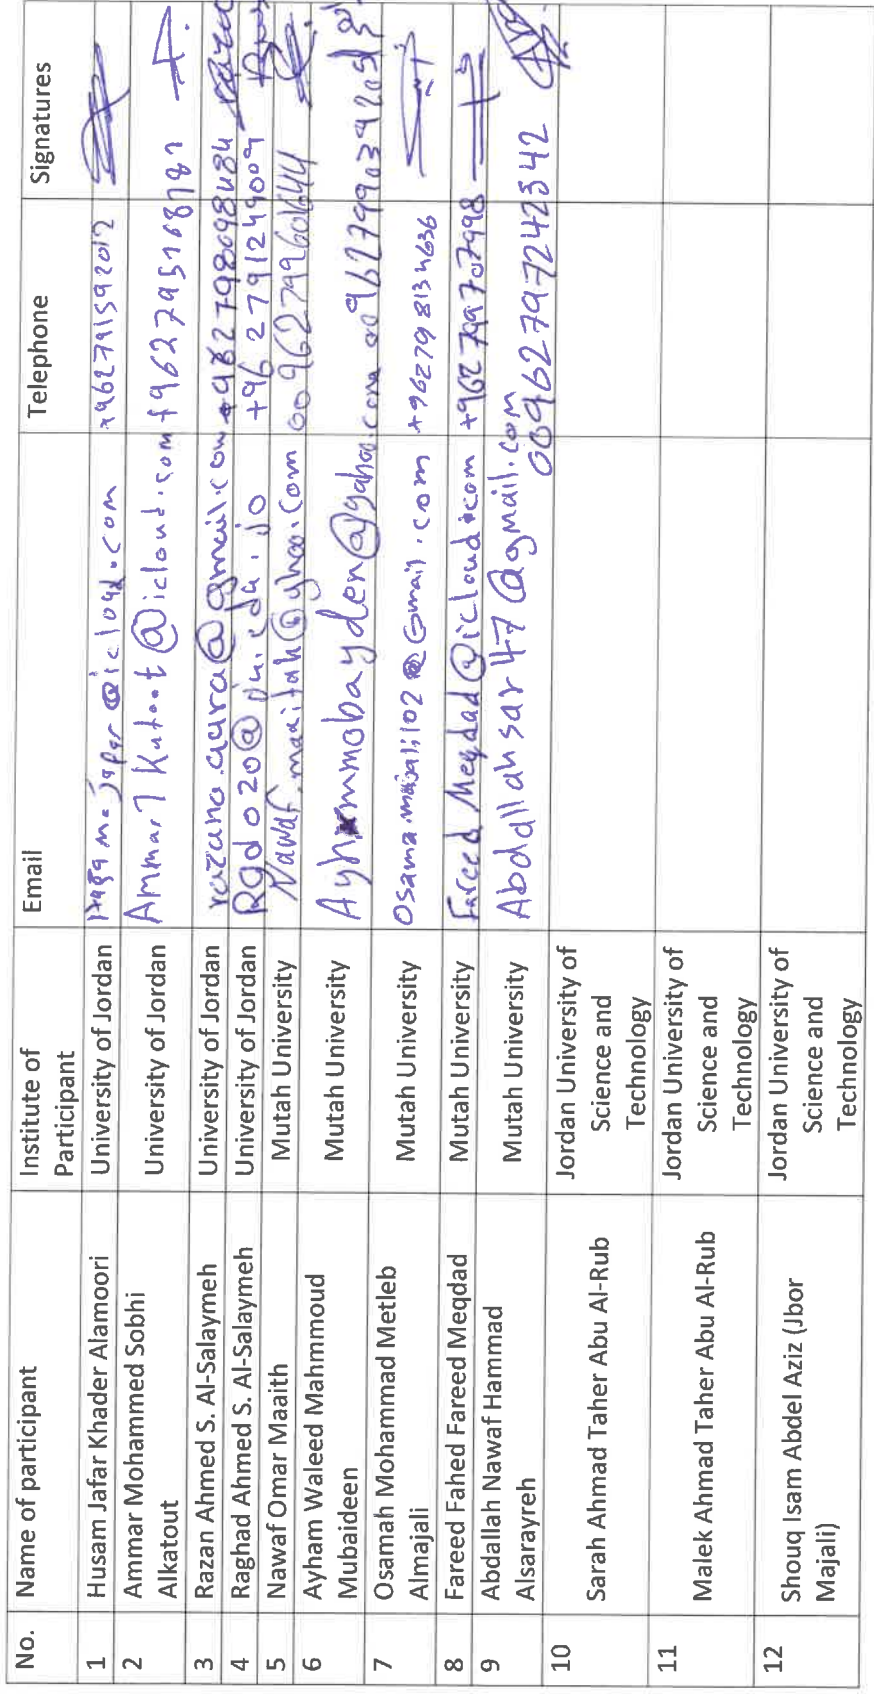 No. Name of participant Institute of Participant Email Telephone Signatures
1 Husam Jafar Khader Alamoori University of Jordan +962791592012
2 Ammar Mohammed Sobhi Alkatout University of Jordan Ammar7Katoot@icloud.com +962795168787
3 Razan Ahmed S. Al-Salaymeh University of Jordan
4 Raghad Ahmed S. Al-Salaymeh University of Jordan +962791249009
5 Nawaf Omar Maaith Mutah University 00962799601644
6 Ayham Waleed Mahmmoud Mubaideen Mutah University
7 Osamah Mohammad Metleb Almajali Mutah University +962798134636
8 Fareed Fahed Fareed Meqdad Mutah University Fareed Meqdad@icloud.com +962799707998
9 Abdallah Nawaf Hammad Alsarayreh Mutah University Abdallahsar47@gmail.com 00962797242342
10 Sarah Ahmad Taher Abu Al-Rub Jordan University of Science and Technology
11 Malek Ahmad Taher Abu Al-Rub Jordan University of Science and Technology
12 Shouq Isam Abdel Aziz (Jbor Majali) Jordan University of Science and Technology